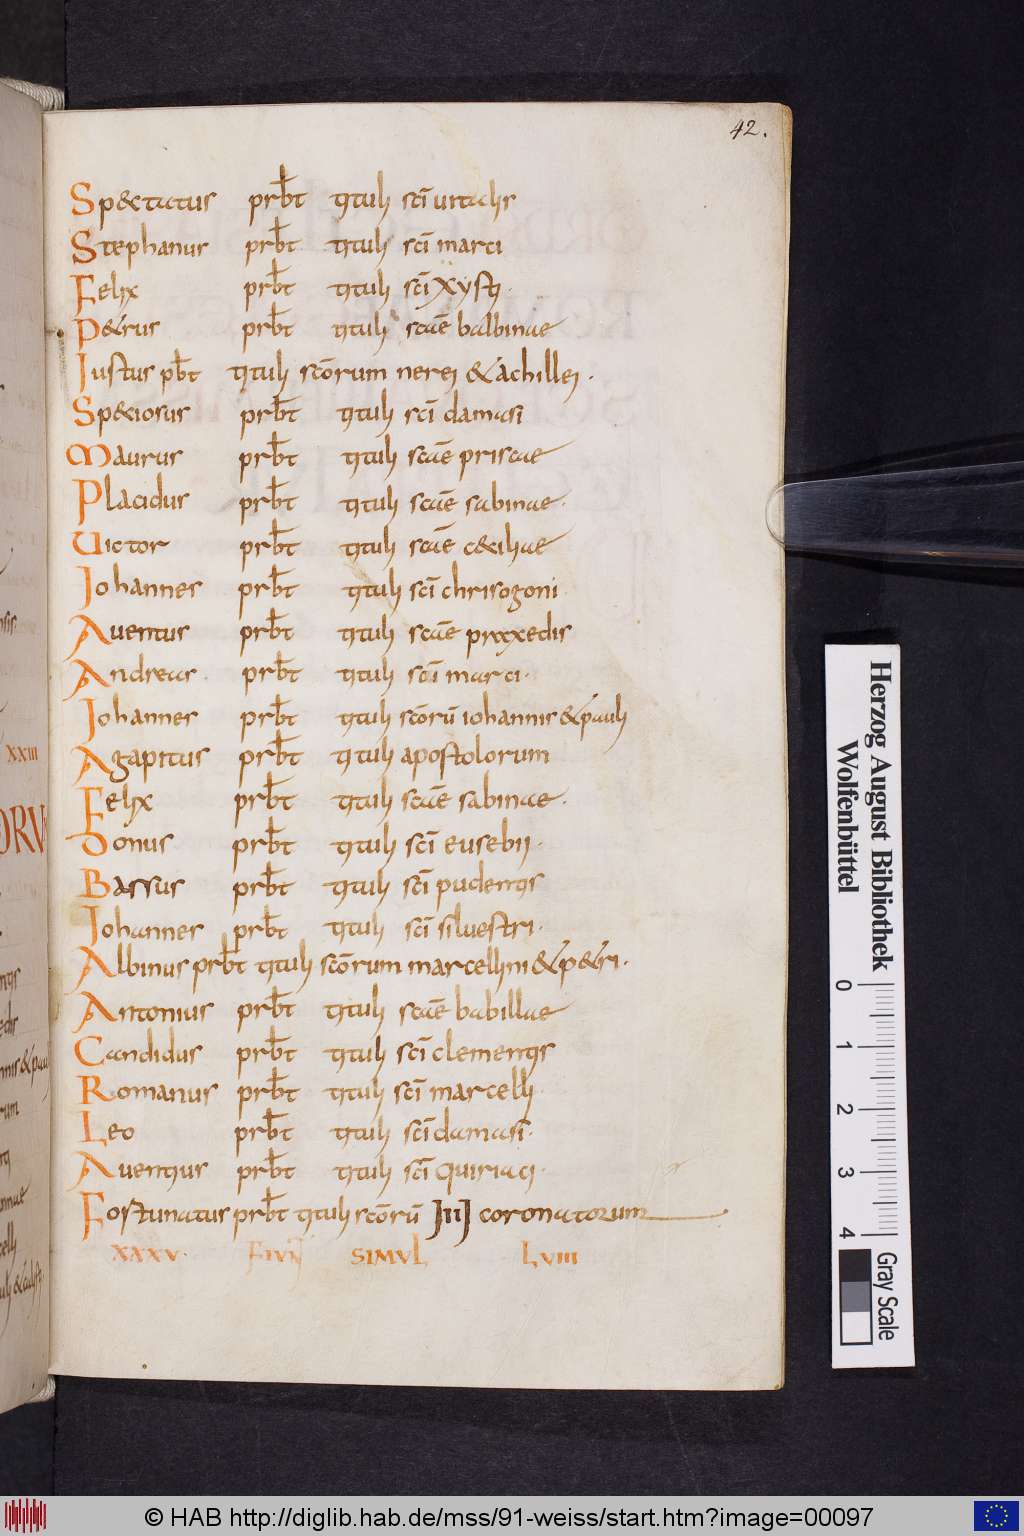 42.
Spectatus prbt tituli sci uitalis
Stephanus prbt tituli sci marci
Felix prbt tituli sci Xysti.
Petrus prbt tituli scae balbinae
Justus pbt tituli scorum nerei & achillei.
Speciosus prbt tituli sci damasi
Maurus prbt tituli scae priscae
Placidus prbt tituli scae sabinae.
Uictor prbt tituli scae ceciliae
Johannes prbt tituli sci chrisogoni
Auentus prbt tituli scae praxedis
Andreas. prbt tituli sci marci.
Johannes prbt tituli scoru iohannis & pauli
Agapitus prbt tituli apostolorum
Felix prbt tituli scae sabinae.
Donus prbt tituli sci eusebii.
Bassus prbt tituli sci pudentis
Johannes prbt tituli sci siluestri.
Albinus prbt tituli scorum marcellini & petri.
Antonius prbt tituli scae babillae
Candidus prbt tituli sci clementis
Romanus prbt tituli sci marcelli
Leo prbt tituli sci damasi.
Auentius prbt tituli sci Quiriaci.
Fostunatus prbt tituli scoru IIII coronatorum
XXXV. FIUN SIMUL LVIII
XXIII
ORV
Herzog August Bibliothek
Wolfenbüttel
0 1 2 3 4
Gray Scale
© HAB http://diglib.hab.de/mss/91-weiss/start.htm?image=00097